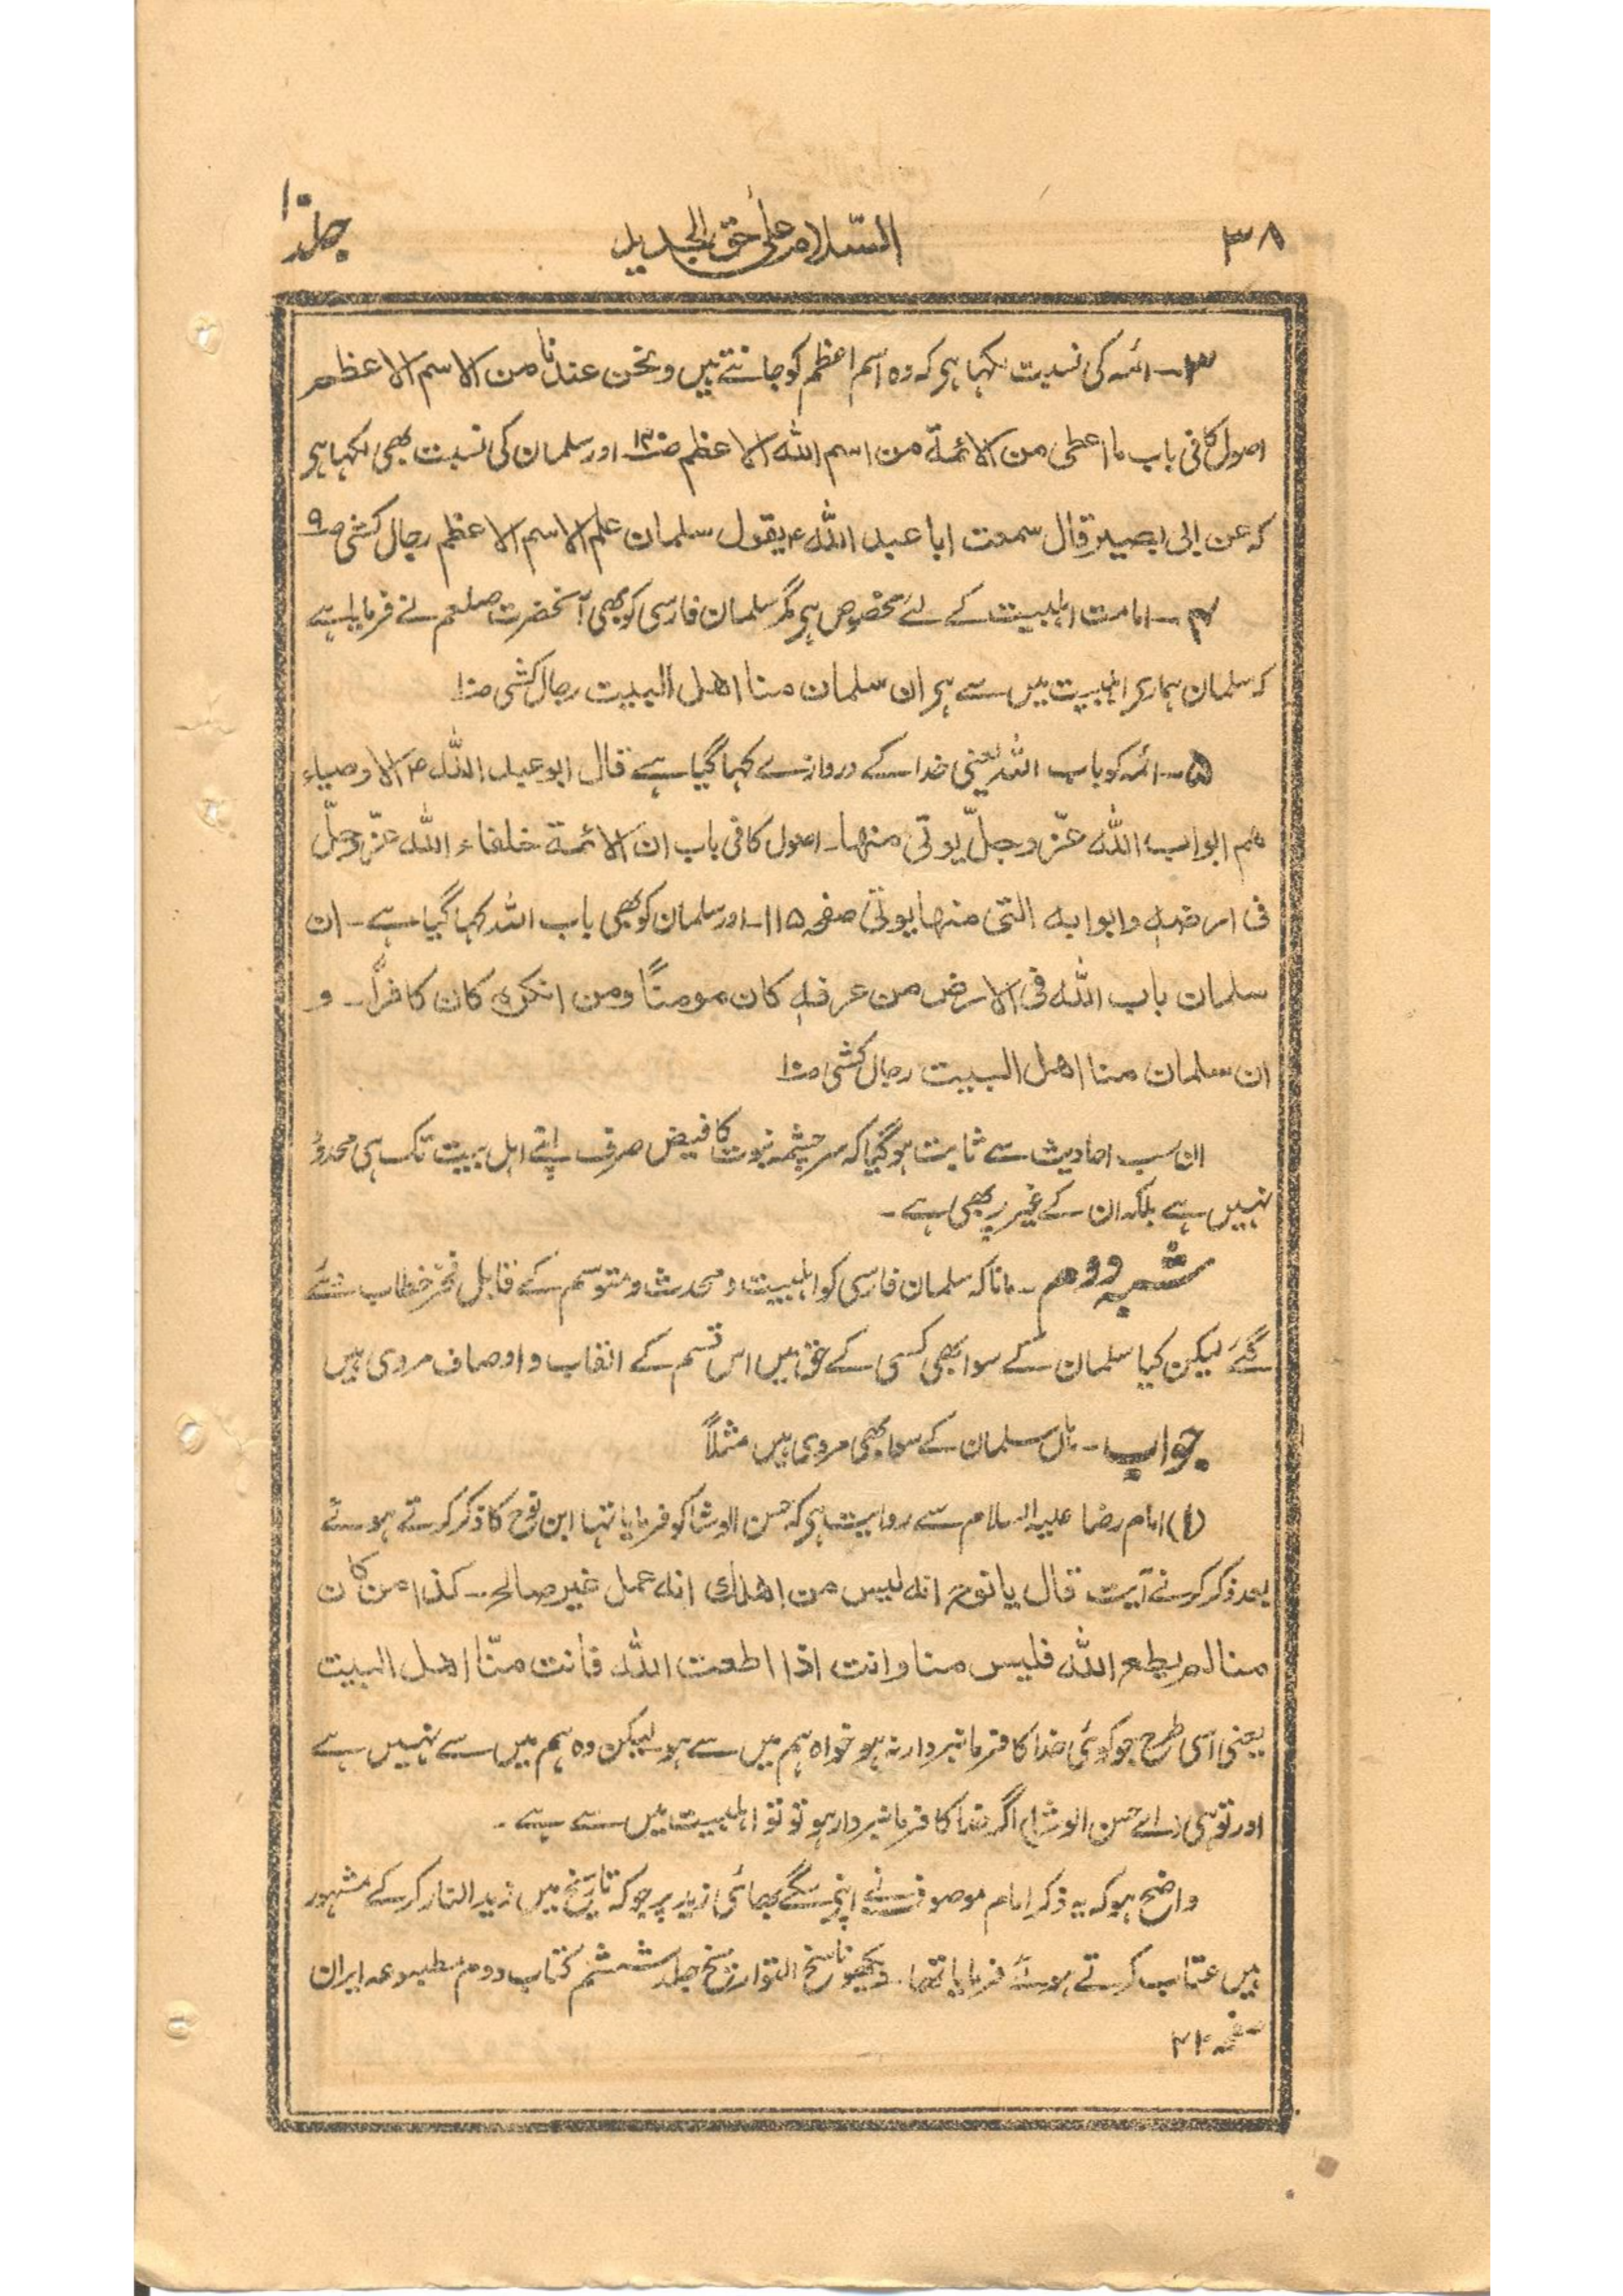 ۳۸
السّلام علیٰ حق الجدید
جلد ۱۰
۳۔ ائمہ کی نسبت لکہا ہی کہ وہ اسم اعظم کو جانتے ہیں ونحن عندنا من الاسم الاعظم
اصول کافی باب ما اعطی من الائمۃ من اسم اللہ الاعظم اور سلمان کی نسبت بھی لکہا ہی
کہ عن ابی بصیر قال سمعت ابا عبد اللہ ع یقول سلمان علم الاسم الاعظم رجال کشی ص۹
۴۔ امامت اہلبیت کے لئے مخصوص ہی مگر سلمان فارسی کو بھی آنحضرت صلعم نے فرمایا ہے
کہ سلمان ہماری اہلبیت میں سے ہی ان سلمان منا اھل البیت رجال کشی ص۱۰
۵۔ ائمہ کو باب اللہ یعنی خدا کے دروازے کہا گیا ہے قال ابو عبد اللہ ع الاوصیاء
ھم ابواب اللہ عزّ وجلّ یوتی منھا۔ اصول کافی باب ان الائمۃ خلفاء اللہ عزّ وجلّ
فی ارضہ وابوابہ التی منھا یوتی صفحہ ۱۱۵۔ اور سلمان کو بھی باب اللہ کہا گیا ہے۔ ان
سلمان باب اللہ فی الارض من عرفہ کان مومنًا ومن انکرہ کان کافراً۔ و
ان سلمان منا اھل البیت رجال کشی ص۱۰
ان سب احادیث سے ثابت ہو گیا کہ سرچشمہ نبوت کا فیض صرف اپنے اہل بیت تک ہی محدود
نہیں ہے بلکہ ان کے غیر پر بھی ہے۔
شبہ دوم۔ مانا کہ سلمان فارسی کو اہلبیت و محدث و متوسم کے قابل فخر خطاب دئے
گئے لیکن کیا سلمان کے سوا بھی کسی کے حق میں اس قسم کے القاب و اوصاف مروی ہیں
جواب۔ ہاں سلمان کے سوا بھی مروی ہیں مثلاً
(۱) امام رضا علیہ السلام سے روایت ہی کہ حسن الوشا کو فرمایا تہا ابن نوح کا ذکر کرتے ہوئے
بعد ذکر کرنے آیت قال یا نوح انہ لیس من اھلک انہ عمل غیر صالح۔ کذا من کان
منا لم یطع اللہ فلیس منا وانت اذا اطعت اللہ فانت منّا اھل البیت
یعنی اسی طرح جو کوئی خدا کا فرمانبردار نہ ہو خواہ ہم میں سے ہو لیکن وہ ہم میں سے نہیں ہے
اور تو بھی (اے حسن الوشا) اگر خدا کا فرمانبردار ہو تو تو اہلبیت میں سے ہے۔
واضح ہو کہ یہ ذکر امام موصوف نے اپنے سگے بھائی زید پر جو کہ تاریخ میں زید النار کر کے مشہور
ہیں عتاب کرتے ہوئے فرمایا تھا۔ دیکھو ناسخ التواریخ جلد ششم کتاب دوم مطبوعہ ایران
صفحہ ۴۲